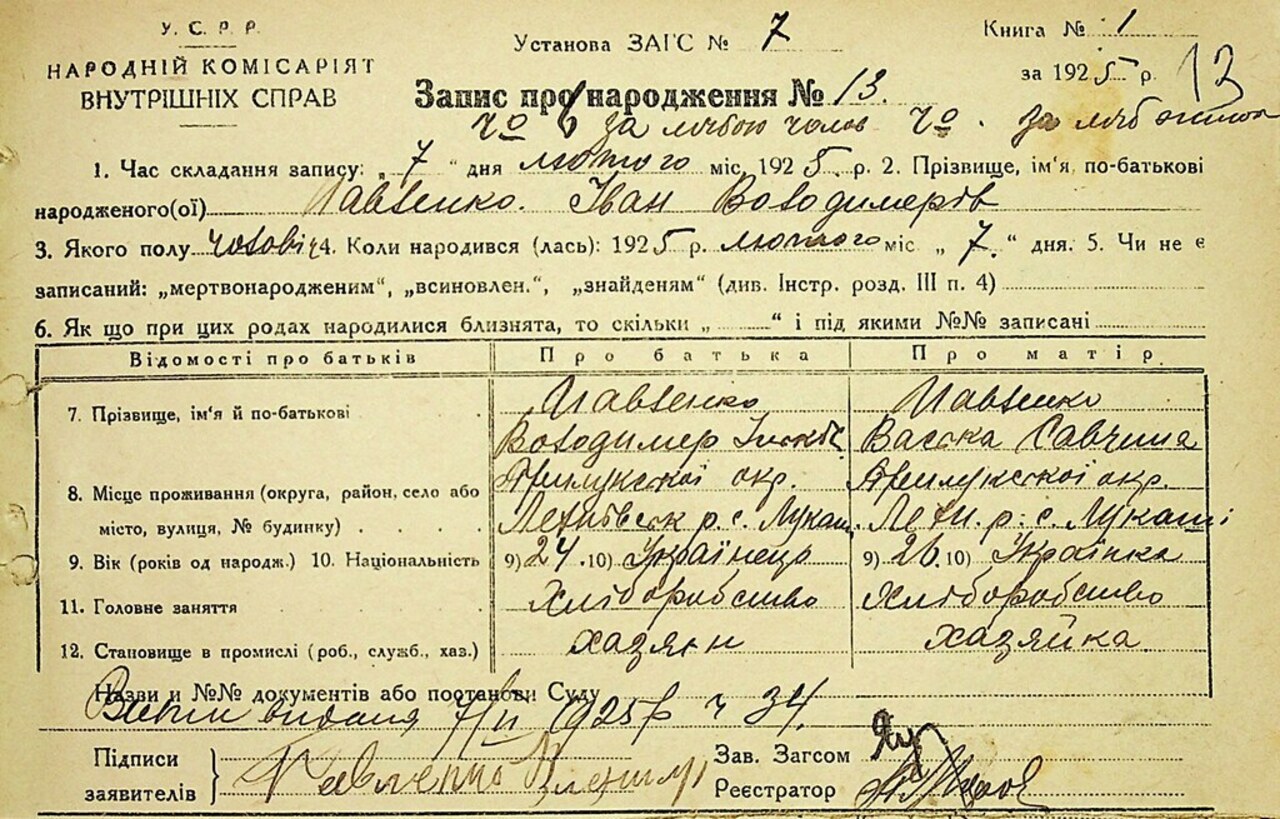 У. С. Р. Р.
НАРОДНІЙ КОМІСАРІЯТ
ВНУТРІШНІХ СПРАВ
Установа ЗАГС № 7
Книга № 1
за 1925 р.
13
Запис про народження № 13.
чо 6 за лічбою чолов чо . за лічб
1. Час складання запису: „ 7 “ дня лютого міс. 1925 р. 2. Прізвище, ім'я, по-батькові
народженого(ої) Павленко. Іван Володимерів
3. Якого полу чоловіч 4. Коли народився (лась): 1925 р. лютого міс „ 7. “ дня. 5. Чи не є
записаний: „мертвонародженим“, „всиновлен.“, „знайденям“ (див. Інстр. розд. III п. 4)
6. Як що при цих родах народилися близнята, то скільки „ “ і під якими №№ записані
Відомості про батьків Про батька Про матір.
7. Прізвище, ім'я й по-батькові Павленко Павленко
Володимер Василька Савчина
8. Місце проживання (округа, район, село або Прилукської окр. Прилукської окр.
місто, вулиця, № будинку) р. с. Лукаш. р. с. Лукаші
9. Вік (років од народж.) 10. Національність 9) 24 .10) Українець 9) 26. 10) Українка
11. Головне заняття Хліборобство Хліборобство
12. Становище в промислі (роб., служб., хаз.) хазяїн хазяйка
Назви и №№ документів або постанови Суду
видана 7/II 1925 р ч 34.
Підписи
заявителів
Павленко
Зав. Загсом
Реєстратор